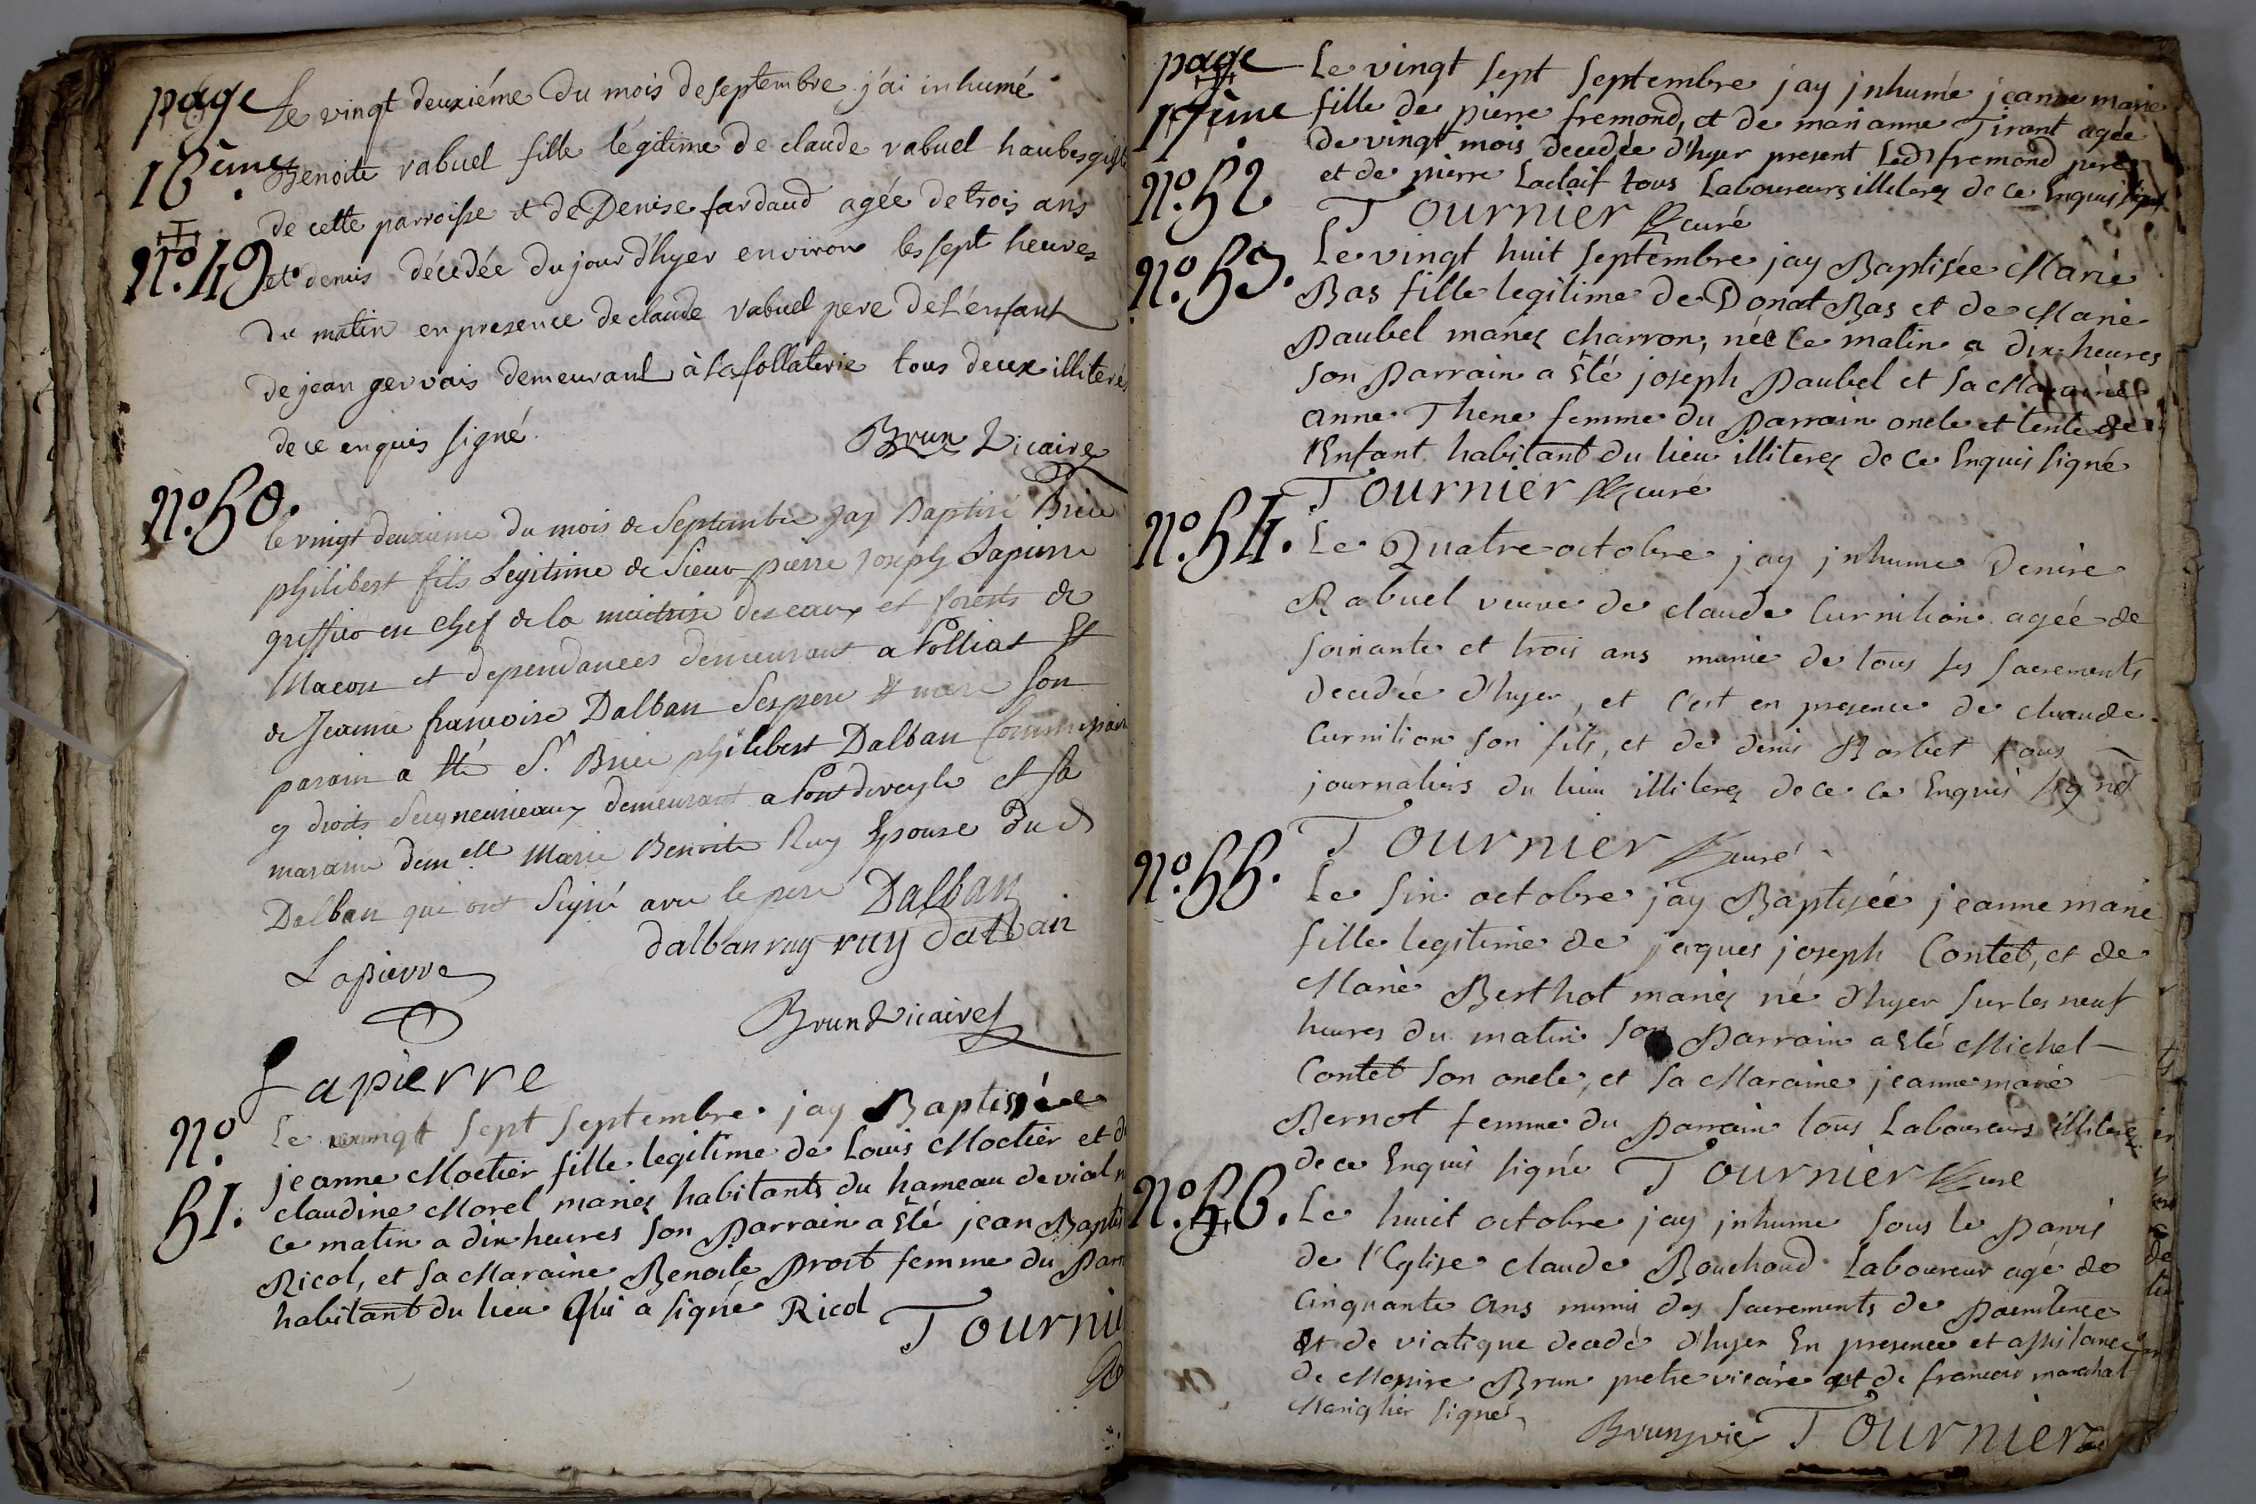 page
16ème
Le vingt deuxiéme du mois de septembre j'ai inhumé
Benoite rabuel fille légitime de claude rabuel
de cette parroisse et de Denise fardaud agée de trois ans
N.º 49.
et demis décédée du jour d'hyer environ les sept heures
du matin en presence de claude rabuel pere de L'enfant
de jean gervais demeurant à la follaterie tous deux illiterés
de ce enquis signé.
Brun Vicaire
N.º 50.
le vingt deuxieme du mois de Septembre jay Baptisé Brice
philibert fils Legitime de Sieur pierre joseph Lapierre
greffier en chef de la maitrise des eaux et forests de
Macon et dependances demeurant a Polliat Et
de Jeanne francoise Dalban Ses pere & mere son
parain a Eté S.r Brice philibert Dalban Commissaire
es droits Seigneuriaux demeurant a Pontdeveyle et sa
maraine dem.elle Marie Benoite Ruy Epouse du d
Dalban qui ont Signé avec le pere Dalban
dalban ruy ruy dalban
Lapierre
Brun Vicaire
Lapierre
N.º
51.
Le vingt sept septembre jay Baptisée
jeanne Moctier fille legitime de Louis Moctier et d
claudine Morel mariez habitants du hameau de vial
ce matin a dix heures son Parrain a Eté jean Baptis
Ricol, et sa Maraine Benoite Proit femme du Parr
habitant du lieu Qui a signé Ricol
Tourni
page
17ème
Le vingt sept septembre jay jnhumé jeanne marie
fille de pierre fremond, et de marianne Tirant agée
de vingt mois decedée d'hyer present Led fremond pere
N.º 52
et de pierre Laclaif tous Laboureurs illiterez de ce Enquis signé
Tournier curé
N.º 53.
Le vingt huit septembre jay Baptisée Marie
Bas fille legitime de Donat Bas et de Marie
Paubel mariez charron, née le matin a dix heures
son Parrain a Eté joseph Paubel et sa Maraine
anne Thene femme du Parrain oncle et tente de
l'Enfant habitant du lieu illiterez de ce Enquis signé
Tournier curé
N.º 54.
Le Quatre octobre jay jnhumé Denise
Rabuel veuve de claude Curnilion agée de
soixante et trois ans munie de tous ses sacrements
decedée d'hyer, et c'est en presence de claude
Curnilion son fils, et de denis Barbet tous
journaliers du lieu illiterez de ce ce Enquis signé
Tournier curé
N.º 55.
Le six octobre jay Baptisée jeanne marie
fille legitime de jacques joseph Contet, et de
Marie Berthot mariez né d'hyer sur les neuf
heures du matin son Parrain a Eté Michel
Contet son oncle, et sa Maraine jeanne marie
Bernot femme du Parrain tous Laboureurs illiterez
de ce Enquis signé Tournier curé
N.º 56.
Le huit octobre jay jnhumé sous le Parvis
de l'Eglise claude Bouchoud Laboureur agé de
Cinquante ans munis des sacrements de Paenitence
et de viatique decedé d'hyer En presence et assistance
de Messire Brun pretre vicaire et de francois marechal
Mariglier signés
Brun vic Tournier